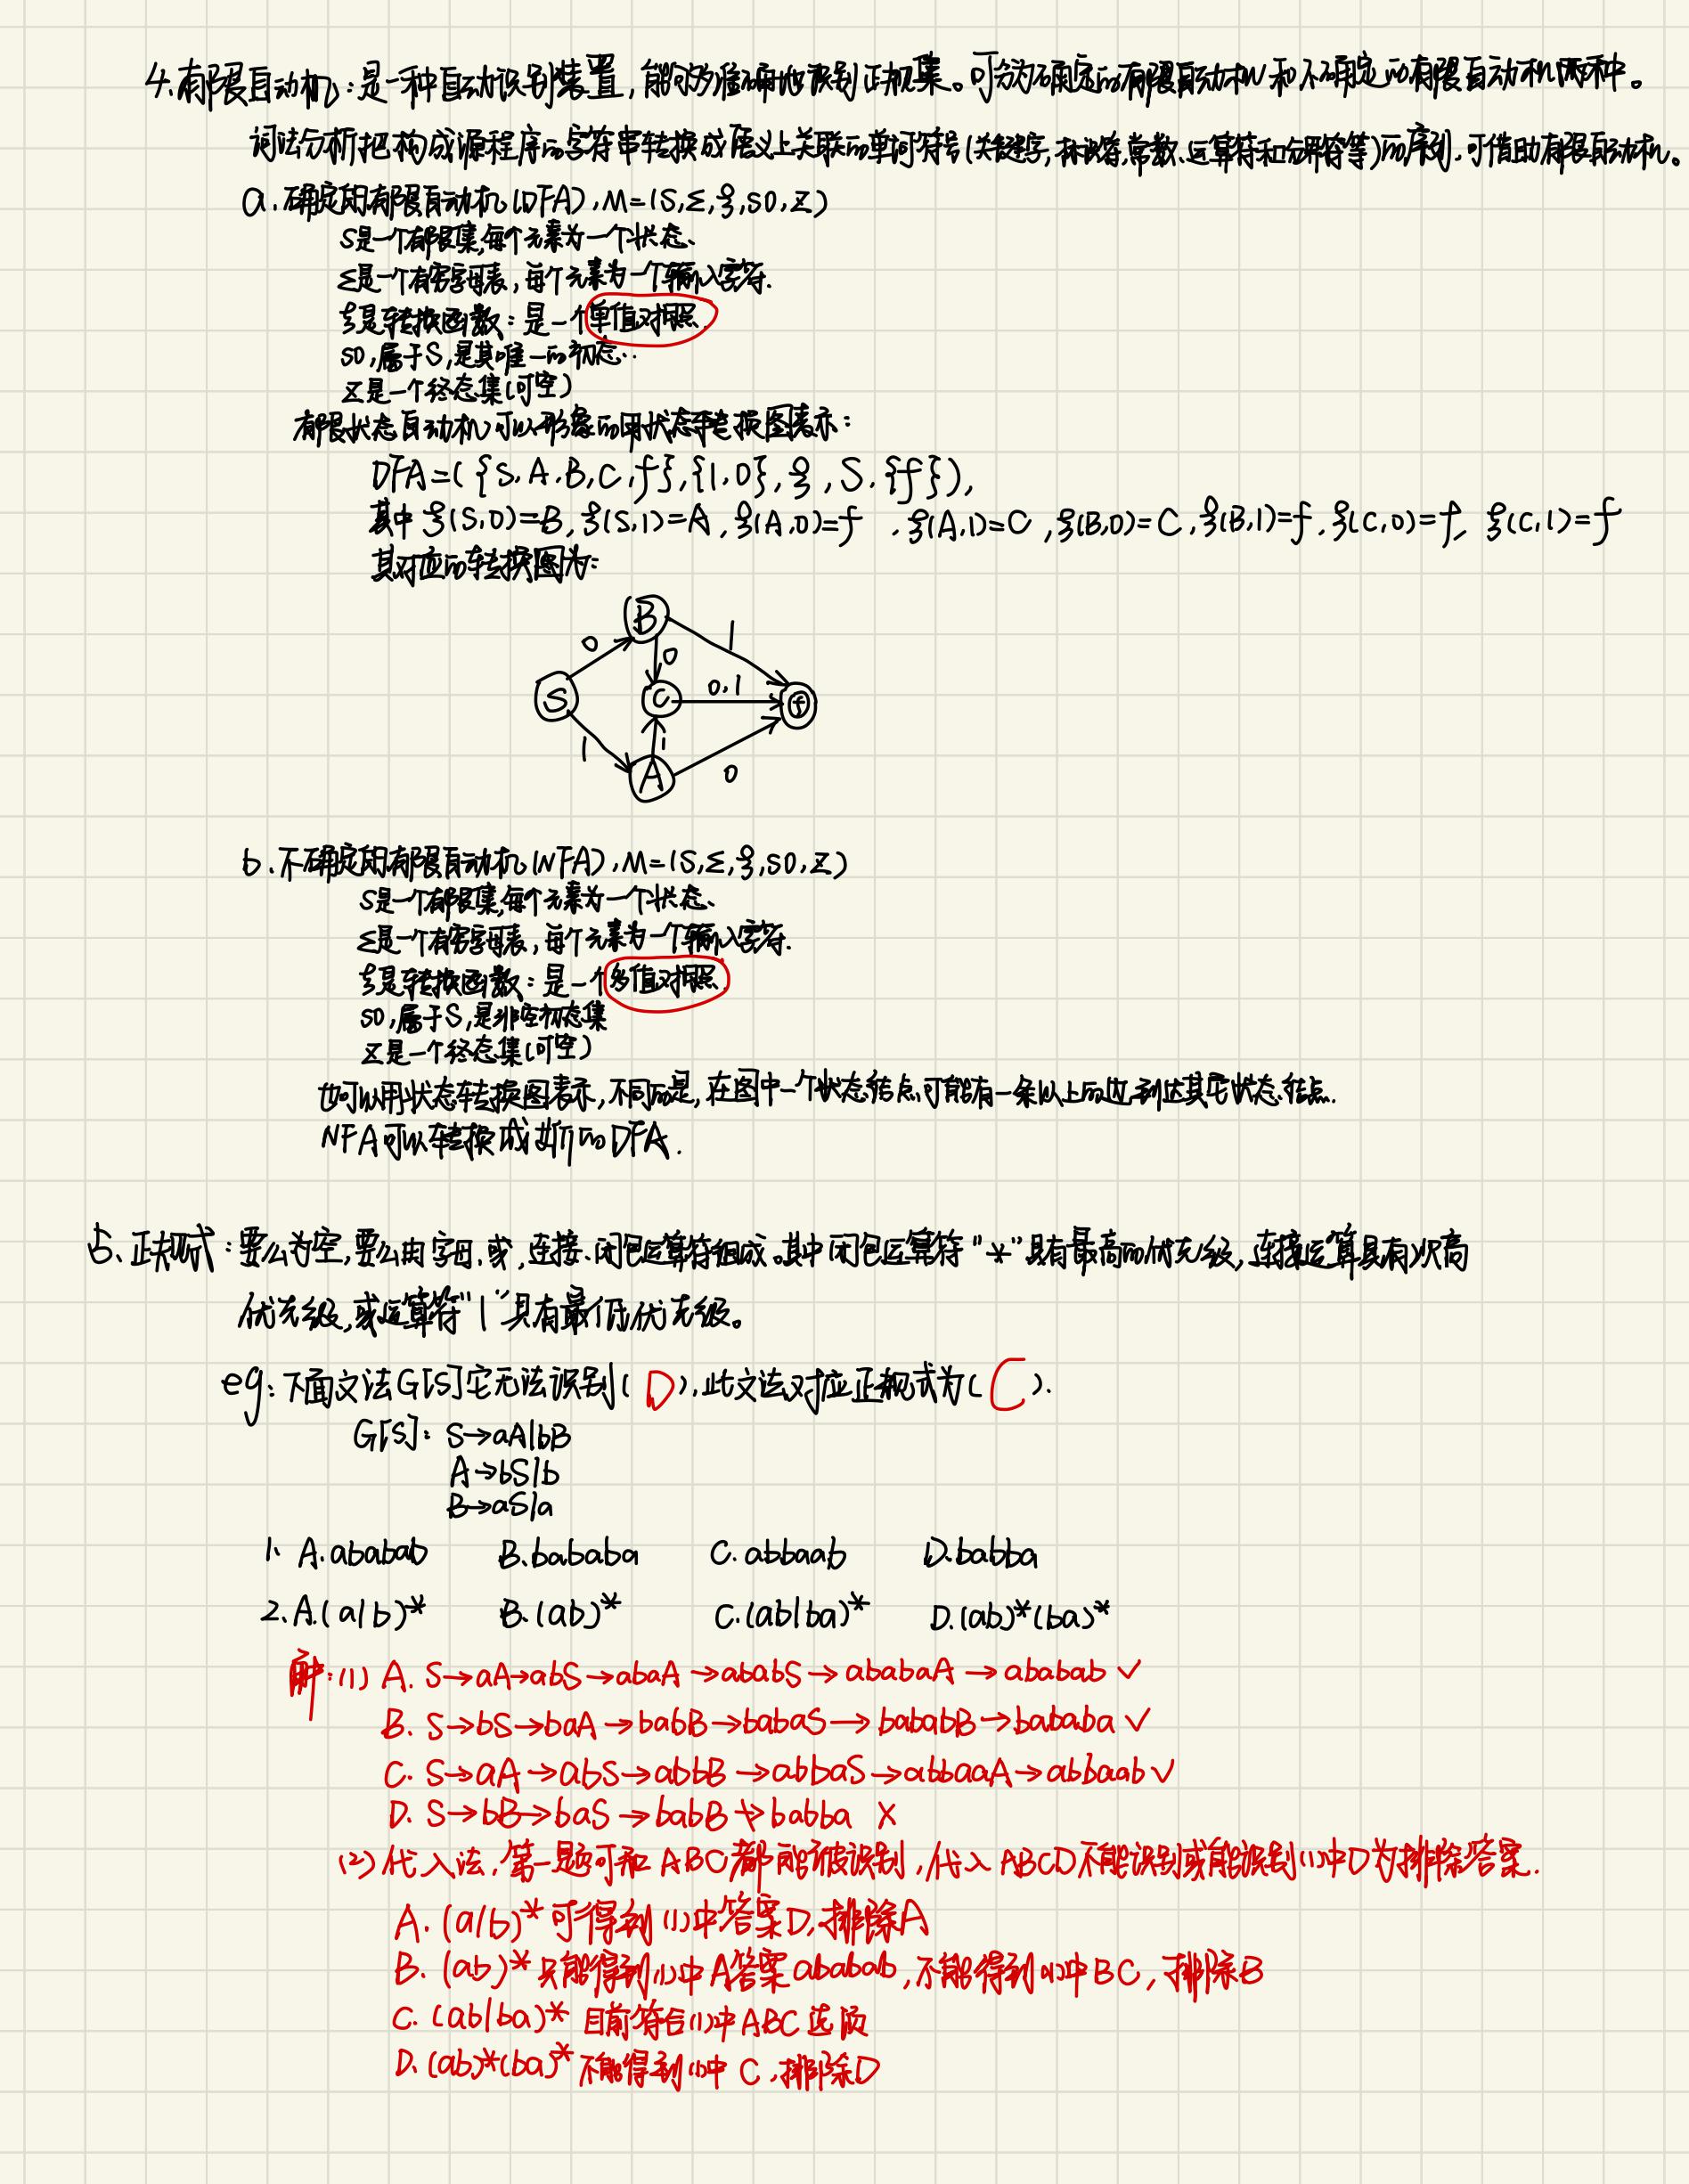 4.有限自动机:是一种自动识别装置,能够准确地识别正规集。可分为确定的有限自动机和不确定的有限自动机两种。
词法分析把构成源程序的字符串转换成语义上关联的单词符号(关键字,标识符,常数、运算符和分界符等)的序列,可借助有限自动机。
a.确定的有限自动机(DFA),M=(S,Σ,ξ,S0,Z)
S是一个有限集,每个元素为一个状态、
Σ是一个有穷字母表,每个元素为一个输入字符.
ξ是转换函数:是一个单值对照.
S0,属于S,是其唯一的初态..
Z是一个终态集(可空)
有限状态自动机可以形象的用状态转换图表示:
DFA=({S.A.B,C,f},{1.0},ξ,S.{f}),
其中ξ(S,0)=B,ξ(S,1)=A,ξ(A,0)=f ,ξ(A,1)=C,ξ(B,0)=C,ξ(B,1)=f,ξ(C,0)=f, ξ(C,1)=f
其对应的转换图为:
B
0 1
0
S C 0.1 f
1 1
A 0
b.不确定的有限自动机(NFA),M=(S,Σ,ξ,S0,Z)
S是一个有限集,每个元素为一个状态、
Σ是一个有穷字母表,每个元素为一个输入字符.
ξ是转换函数:是一个多值对照.
S0,属于S,是非空初态集
Z是一个终态集(可空)
也可以用状态转换图表示,不同的是,在图中一个状态结点可能有一条以上的边到达其它状态结点.
NFA可以转换成 的DFA.
5、正规式:要么为空,要么由字母.或,连接.闭包运算符组成。其中闭包运算符"*"具有最高的优先级,连接运算具有次高
优先级,或运算符"|"具有最低优先级。
eg:下面文法G[S]它无法识别( D ),此文法对应正规式为( C ).
G[S]: S→aA|bB
A→bS|b
B→aS|a
1、A.ababab B.bababa C.abbaab D.babba
2.A.(a|b)* B.(ab)* C.(ab|ba)* D.(ab)*(ba)*
解:(1) A. S→aA→abS→abaA→ababS→ababaA→ababab ✓
B. S→bS→baA→babB→babaS→bababB→bababa ✓
C. S→aA→abS→abbB→abbaS→abbaaA→abbaab ✓
D. S→bB→baS→babB↛babba ×
(2)代入法,第一题可知ABC都能被识别,代入ABCD不能识别或能识别(1)中D为排除答案.
A. (a|b)*可得到(1)中答案D,排除A
B. (ab)*只能得到(1)中A答案ababab,不能得到(1)中BC,排除B
C. (ab|ba)* 目前符合(1)中ABC选项
D. (ab)*(ba)*不能得到(1)中C,排除D